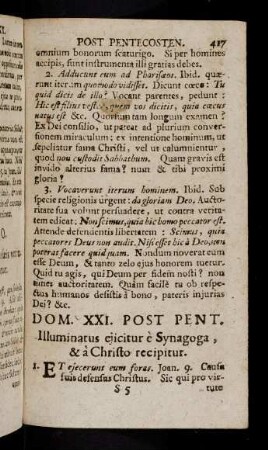 POST PENTECOSTEN. 417
omnium bonorum scaturigo. Si per homines
accipis, sunt instrumenta illi gratias debes.
2. Adducunt eum ad Pharisæos. Ibid. quæ-
runt iterum quomodo vidisset. Dicunt cœco: Tu
quid dicis de illo? Vocant parentes, pedunt:
Hic est filius vest. quem vos dicitis, quia cæcus
natus est &c. Quorsum tam longum examen?
Ex Dei consilio, ut pateat ad plurium conver-
sionem miraculum; ex intentione hominum, ut
sepeliatur fama Christi, vel ut calumnientur,
quod non custodit Sabbathum. Quam gravis est
invido alterius fama? num & tibi proximi
gloria?
3. Vocaverunt iterum hominem. Ibid. Sub
specie religionis urgent: da gloriam Deo. Aucto-
ritate sua volunt persuadere, ut contra verita-
tem edicat: Non scimus, quia hic homo peccator est.
Attende defendentis libertatem: Scimus, quia
peccatores Deus non audit. Nisi esset hic à Deo, non
poterat facere quidquam. Nondum noverat eum
esse Deum, & tanto zelo ejus honorem tuetur.
Quid tu agis, qui Deum per fidem nosti? non
times auctoritatem. Quàm facilè tu ob respe-
ctus humanos desistis à bono, pateris injurias
Dei? &c.
DOM. XXI. POST PENT.
Illuminatus ejicitur è Synagoga,
& à Christo recipitur.
1. ET ejecerunt eum foras. Joan. 9. Causa
suis defensus Christus. Sic qui pro vir-
S 5 tute